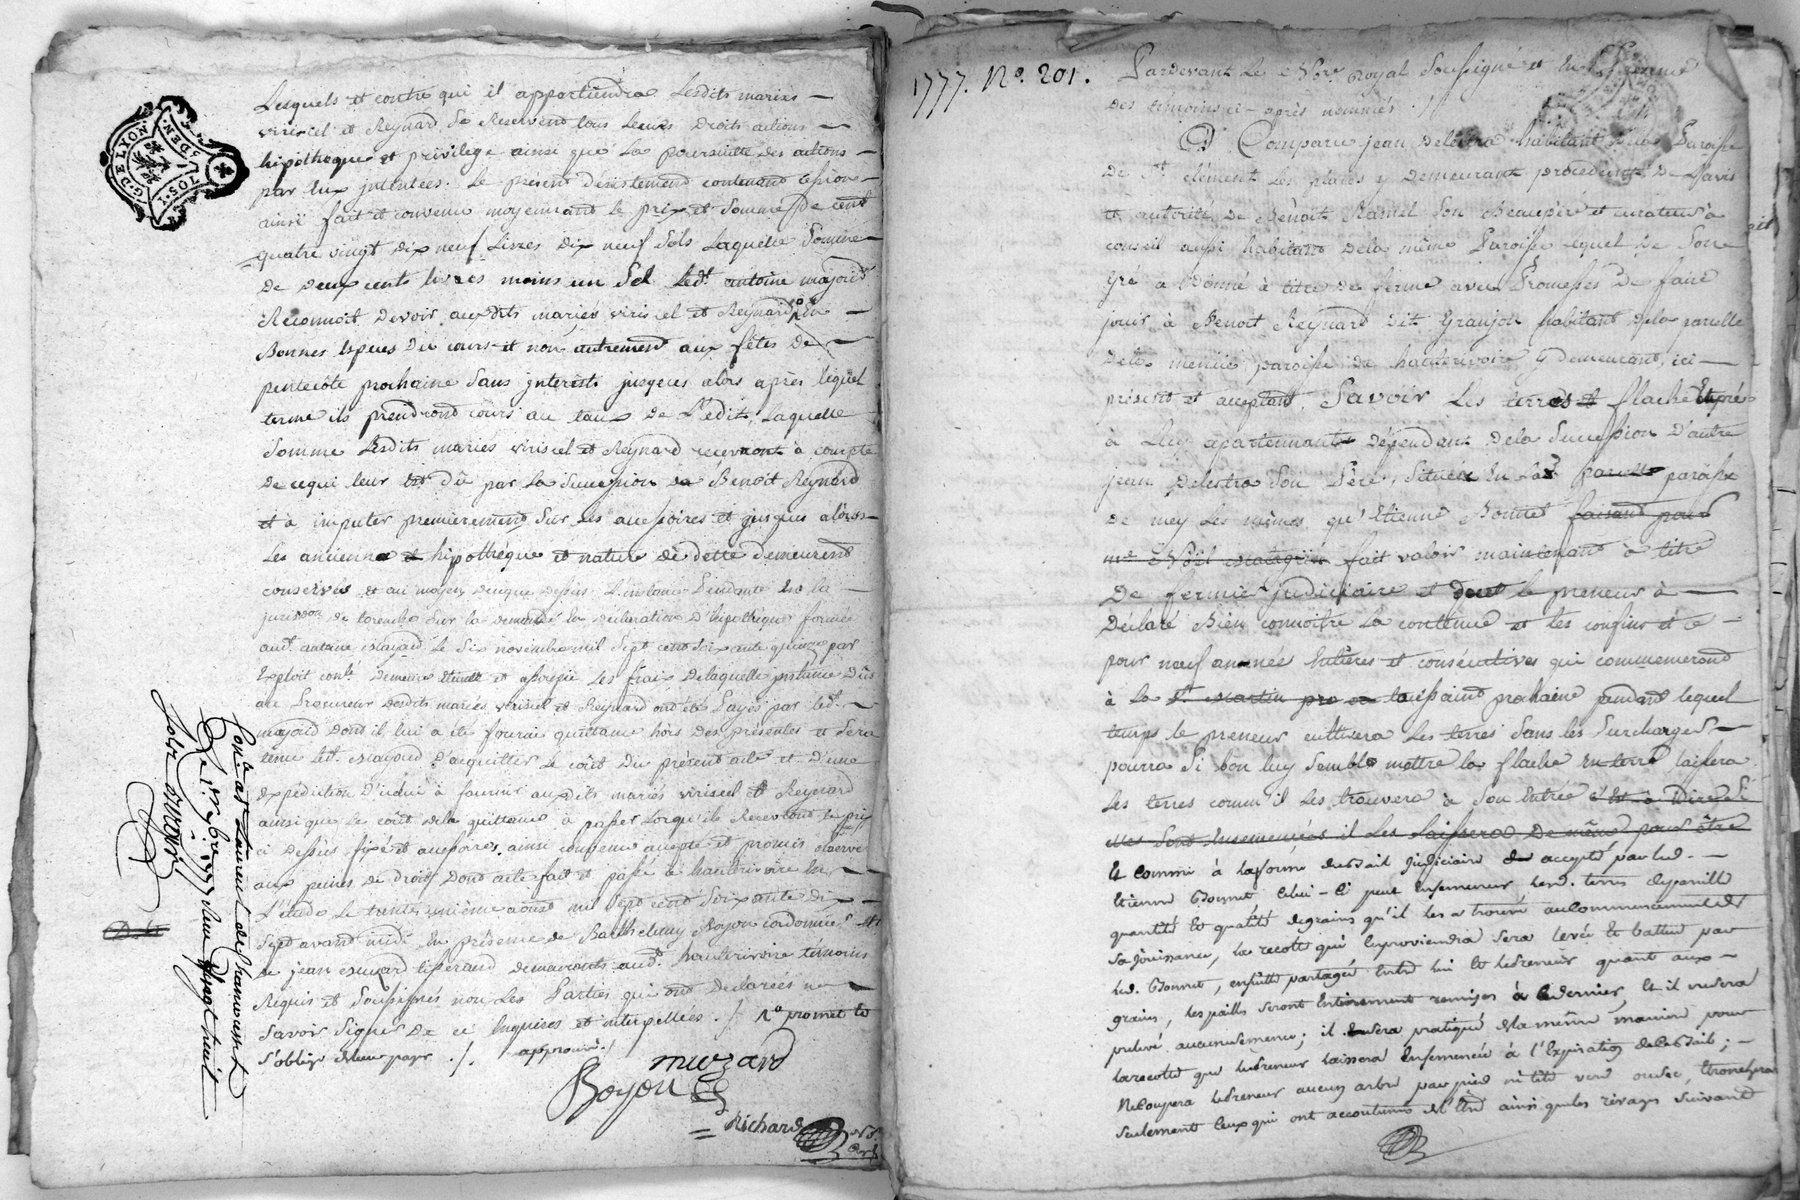 G. DE LYON.
5 DEN.
Lesquels et contre qui il appartiendra lesdits mariés
viricel et Reynard se reservent tous leurs droits actions
hipotheque et privilege ainsi que la poursuitte des actions
par eux intentées. le présent désistement contenant cession
ainsi fait et convenu moyennant le prix et somme de cent
quatre vingt dix neuf livres dix neuf sols laquelle somme
de deux cents livres moins un sol led. antoine mayoud
Reconnoit devoir auxdits mariés viricel et Reynard en
Bonnes especes du cours et non autrement aux fêtes de
pentecôte prochaine sans interêts jusques alors après lequel
terme ils prendront cours au taux de l'edit, laquelle
somme lesdits mariés viricel et Reynard recevront à compte
de ce qui leur est dû par la succession de Benoit Reynard
et à imputer premierement sur les accessoires et jusques alors
les anciennes hipothéque et nature de dette demeurent
conservés et au moyen de ce que dessus l'instance pendante en la
jurisdon de sur la demande en déclaration d'hipothèque formée
aud. antoine mayoud le six novembre mil sept cent soixante quinze par
Exploit demeure éteinte et assoupie les frais de laquelle instance dûs
au Procureur desdits mariés viricel et Reynard ont été payés par led.
mayoud dont il lui a été fourni quittance hors des présentes et sera
tenu led. mayoud d'acquitter le coût du présent acte et d'une
expédition d'icelui à fournir auxdits mariés viricel et Reynard
ainsi que le coût de la quittance à passer lorsqu'ils recevront le prix
ci dessus fixé et accessoires. ainsi convenu accepté et promis observer
aux peines de droit dont acte fait et passé à hauterivoire en
l'étude le trente unième aoust mil sept cent soixante dix
sept avant midi en présence de Barthelemy Boyon cordonnier et
de jean muzard tisserand demeurants aud. hauterivoire témoins
Requis et soussignés non les Parties qui ont declarées ne
savoir signer de ce enquises et interpellées. ./. promet et
s'oblige de leur payer ./. approuvé ./.
muzard
Boyon
Richard
Conle. a St Laurent de chamousset
Le 1er 7bre 1777 Reçu vingt huit
sols
1777. No. 201.
Pardevant le Nore. Royal soussigné et en présence
des témoins ci-après nommés ./.
A Comparu jean Delestra habitant de la Paroisse
de St. clément les places y demeurant procédant de l'avis
et autorité de Benoit son Beaupère et curateur à
conseil aussi habitant de la même Paroisse lequel de son
gré a donné à titre de ferme avec Promesses de faire
jouir à Benoit Reynard dit Granjon habitant de la parcelle
de la menue paroisse de hauterivoire y demeurant, ici
présent et acceptant, savoir les terres et flache et pré
à luy apartennants dépendant de la succession d'autre
jean Delestra son Père, situées en la parcelle paroisse
de mey les mêmes qu'Etienne Bonnet faisant pour
me Noël fait valoir maintenant à titre
de fermier judiciaire et dont le preneur à
Déclaré bien connoître la contenue et les confins et ce
pour neuf années entières et consécutives qui commenceront
à la St. martin pro toussaint prochaine pendant lequel
temps le preneur cultivera les terres sans les surcharger
pourra si bon luy semble mettre la flache en terre laissera
les terres comm'il les trouvera à son entrée c'est à dire si
elles sont ensemencées il les laissera de même pour être
Et comme à la forme du Bail judiciaire accepté par led.
Etienne Bonnet celui-ci peut ensemencer lesd. terres de pareille
quantité et qualité de grains qu'il les a trouvé au commencement de
sa jouissance, la recolte qui en proviendra sera levée et battue par
led. Bonnet, ensuitte partagée entre lui et le Preneur quant aux
grains, les pailles seront entierement remises à ce dernier, et il ne sera
prélevé aucune semence; il en sera pratiqué de la même maniere pour
la recolte que le Preneur laissera ensemencée à l'Expiration de ce Bail;
Ne coupera le Preneur aucun arbre par pied ni tête verd ou sec, tronchera
seulement ceux qui ont accoutumé de l'être ainsi que les rivages suivant